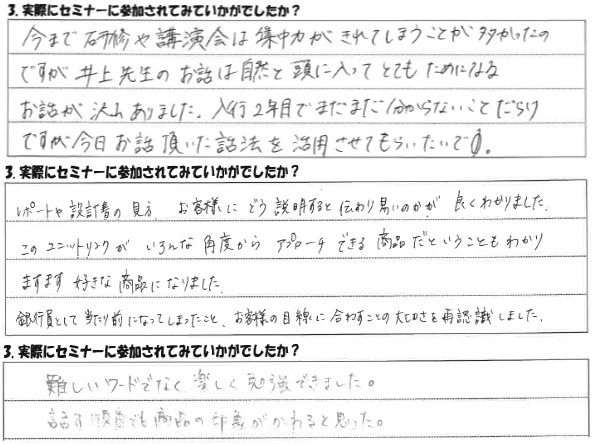 3. 実際にセミナーに参加されてみていかがでしたか？
今まで研修や講演会は集中力がきれてしまうことが多かったの
ですが井上先生のお話は自然と頭に入ってとてもためになる
お話が沢山ありました。入行2年目でまだまだ分からないことだらけ
ですが今日お話頂いた話法を活用させてもらいたいです。
3. 実際にセミナーに参加されてみていかがでしたか？
レポートや設計書の見方、お客様にどう説明すると伝わり易いのかが良くわかりました。
このユニットリンクがいろんな角度からアプローチできる商品だということもわかり
ますます好きな商品になりました。
銀行員として当たり前になってしまったこと、お客様の目線に合わすことの大切さを再認識しました。
3. 実際にセミナーに参加されてみていかがでしたか？
難しいワードでなく、楽しく勉強できました。
話す順番でも商品の印象がかわると思った。